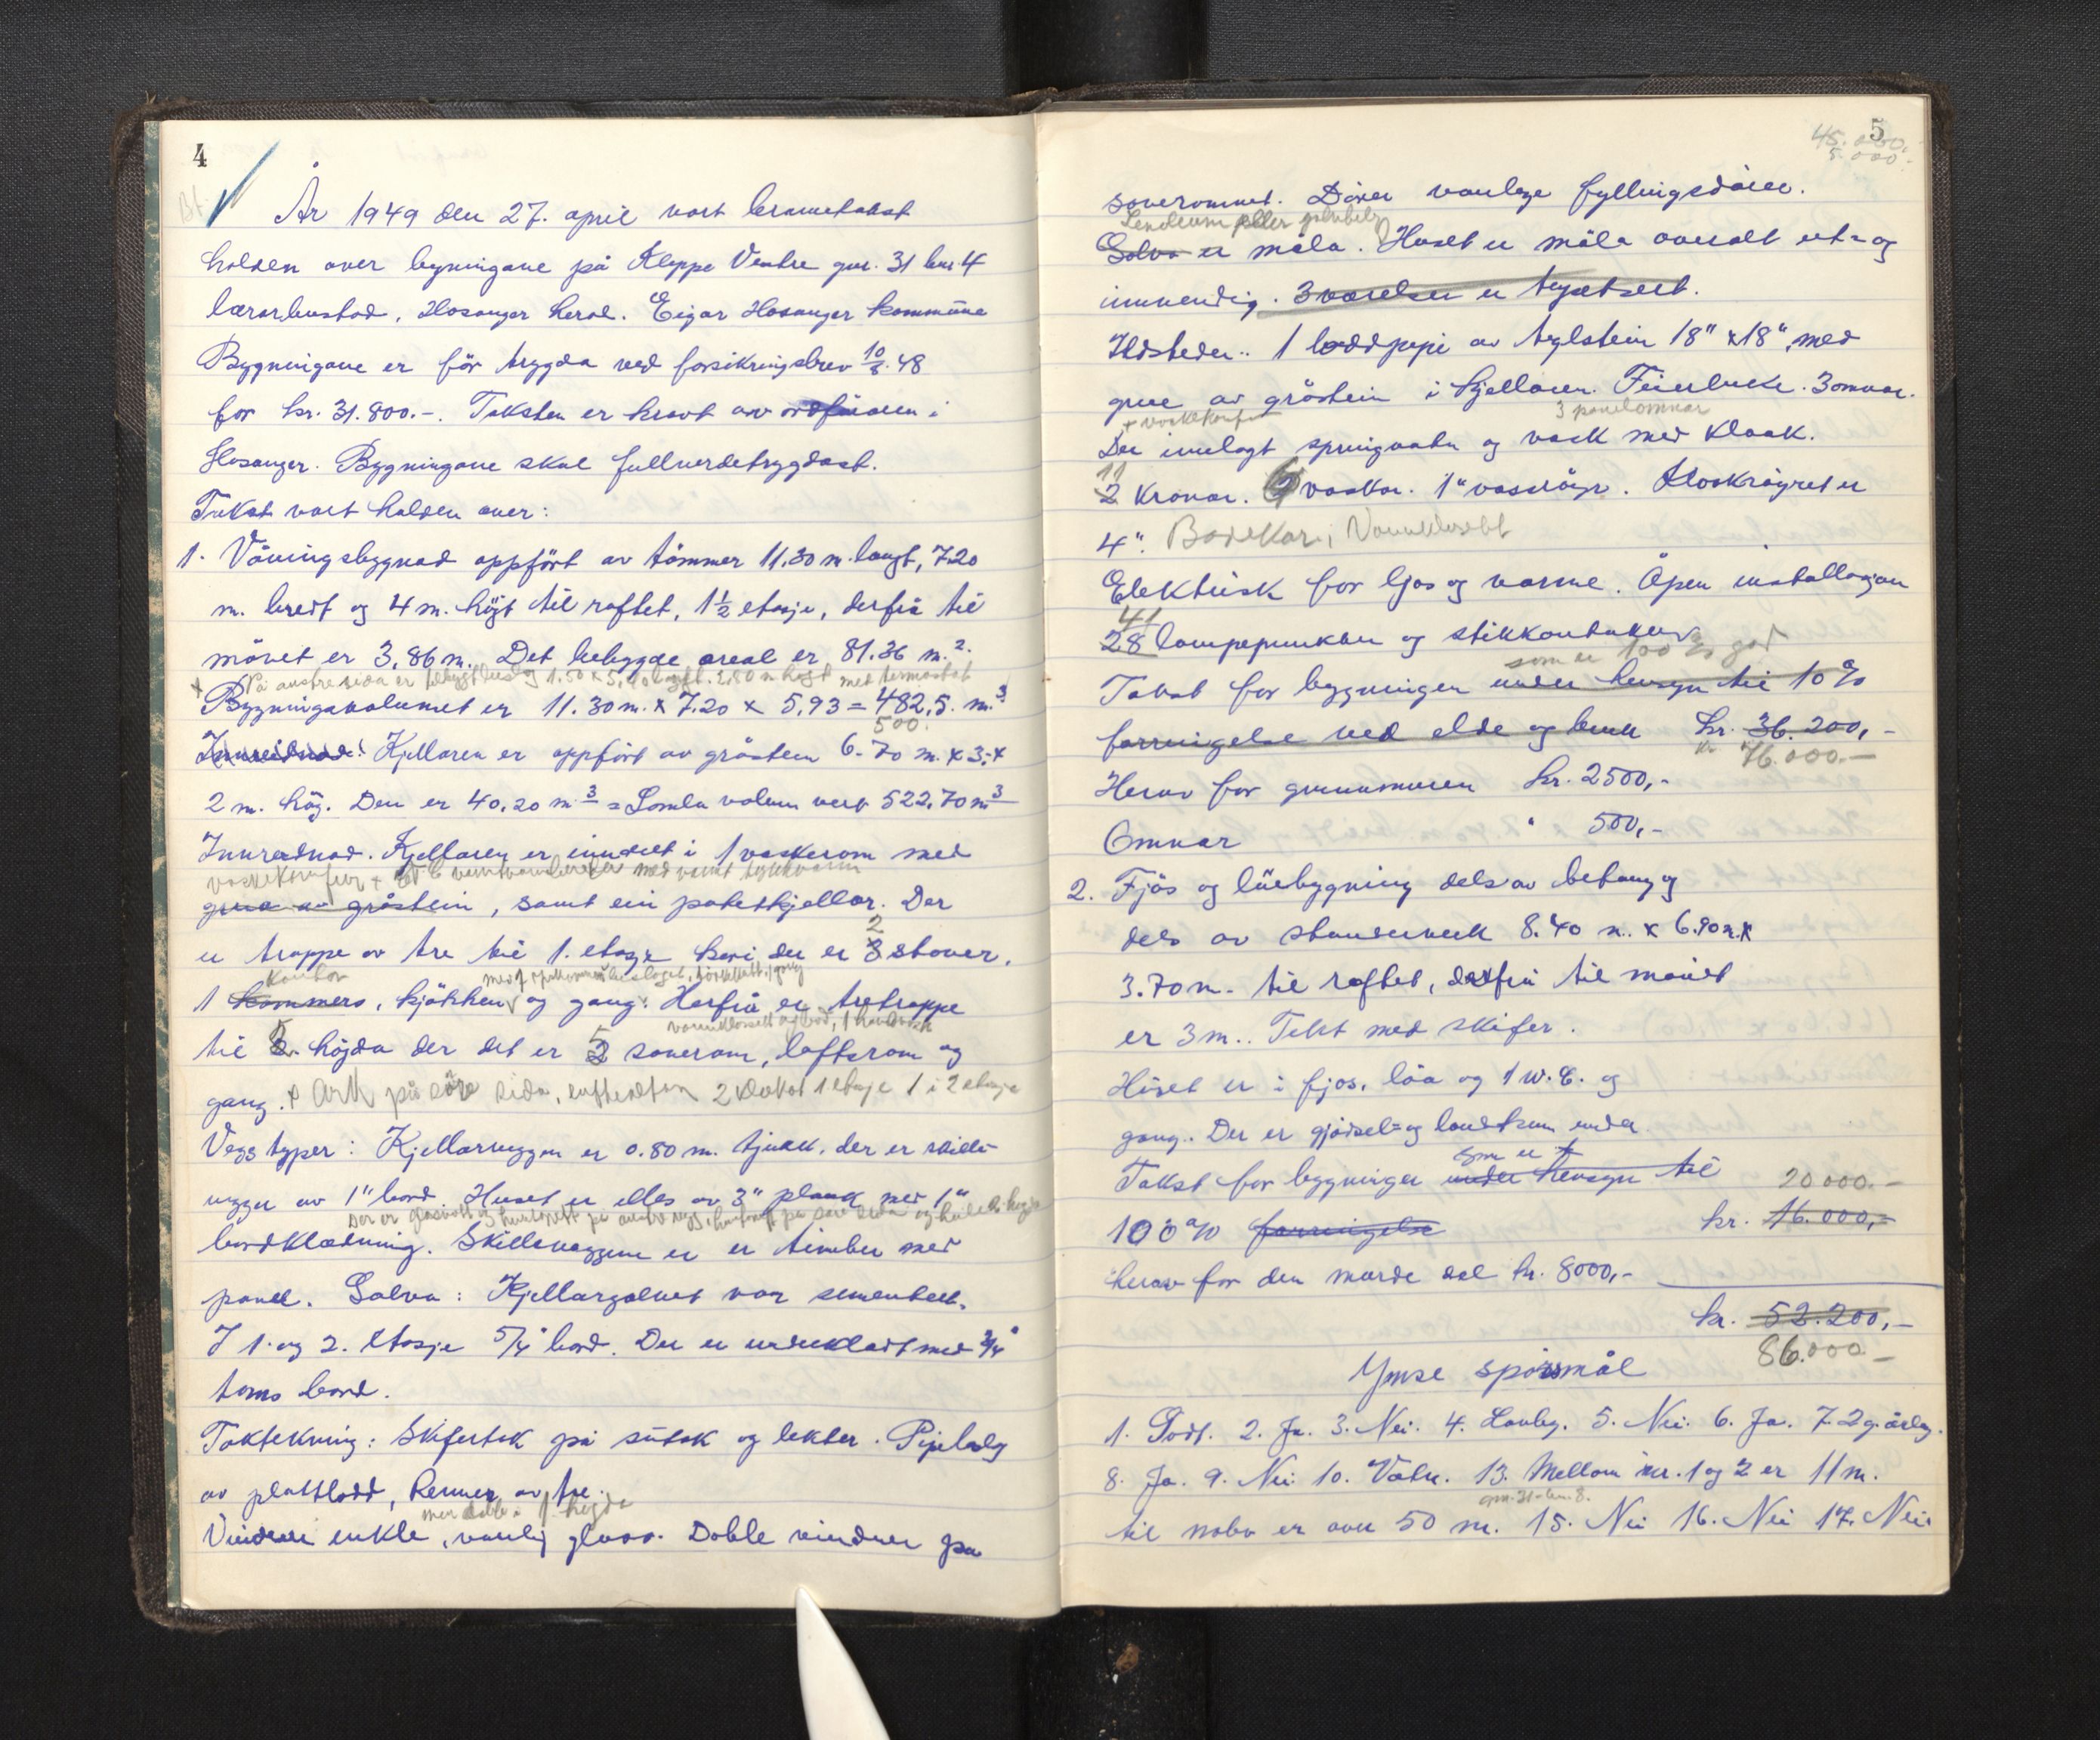 4
Bt.
År 1949 den 27. april vart branntakst
halden over bygningane på Kleppe Ventre gnr. 31 bnr. 4
lærarbustad, Hosanger herad. Eigar Hosanger kommune
Bygningane er før trygda ved forsikringsbrev 10/8. 48
for kr. 31.800.-. Taksten er kravt av ordføraren i
Hosanger. Bygningane skal fullverdetrygdast.
Takst vart halden over:
1. Våningsbygnad oppført av tømmer 11.30 m. langt, 7.20
m. breidt og 4 m. høgt til raftet, 1½ etasje, derfrå til
mønet er 3,86 m. Det bebygde areal er 81.36 m.2.
+ På austre sida er tilbygt 1.50 x 5,40 langt. 2,80 m høgt med termostat
Bygningsvolumet er 11.30 m. x 7.20 x 5,93 = 482,5. m.3
500.
Innreidnad: Kjellaren er oppført av gråstein 6-70 m. x 3.- x
2 m. høg. Den er 40,20 m3 = Samla volum vert 522,70 m3
Innreidnad. Kjellaren er inndelt i 1 vaskerom med
vaskekomfyr +
grua av gråstein, samt ein potetkjellar. Der
2
er trappe av tre til 1. etasje kvori der er 3 stover,
kontor
1 kammers, kjøkken og gang. Herfrå er tretrappe
vannklosett og bad, 1 handvask
til 2. høgda der det er 5 soverom, loftsrom og
gang. + Ark på søre sida, 2 1 etasje 1 i 2 etasje
Veggtyper: Kjellarveggen er 0.80 m. tjukk, der er skille-
vegger av 1" bord. Huset er elles av 3" plank med 1"
bordklædning. Skilleveggene er av timber med
panel. Golva: Kjellargolvet var sementert.
I 1. og 2. etasje 5/4" bord. Der er underkledt med 3/4"
toms bord.
Taktekning: Skifertak på sutak og lekter. Pipebeslag
av plattlodd, Renner av tre.
men doble i 1. høgda
Vinduer enkle, vanlig glass. Doble vinduer på
5
45.000.-
5.000.-
soverommet. Dører vanlege fyllingsdører.
Linoleum eller golvbelegg
Golva er måla. Huset er måla overalt ut- og
innvendig. 3 værelser er tapetsert.
Ildsteder.. 1 loddpipe av teglstein 18" x 18", med
grue av gråstein i kjellaren. Feierluke. 3 omnar.
+ vaskekomfyr 3 panelomnar
Der innlagt springvatn og vask med kloak.
11
2 kranar. 4 vaskar. 1" vassrøyr. Kloakrøyret er
4". Badekar, Vannklosett
Elektrisk for ljos og varme. Open installasjon
41
28 lampepunkter og stikkontakter
som er 100 % god
Takst for bygningen under hensyn til 10 %
forringelse ved elde og bruk kr. 36.200,-
kr. 76.000.-
Herav for grunnmuren kr. 2500,-
Omnar " 500,-
2. Fjøs og løebygning dels av betong og
dels av stenderverk 8.40 m. x 6.90 m. x
3.70 m. til raftet, derfrå til mønet
er 3 m.. Tekt med skifer.
Huset er i fjøs, løa og 1 w.c. og
gang.. Der er gjødsel- og landkum under.
som er
Takst for bygningen under hensyn til 20 000.-
100 % forringelse kr. 16.000,-
herav for den murde del kr. 8000,-
kr. 52.200,-
86.000.-
Ymse spørsmål
1. Godt. 2. Ja. 3. Nei. 4. Lovleg. 5. Nei. 6. Ja. 7. 2 g. årleg.
8. Ja. 9. Nei 10. Vatn. 13. Mellom nr. 1 og 2 er 11 m.
gnr. 31 - bnr. 8.
til nabo er over 50 m. 15. Nei 16. Nei 17. Nei